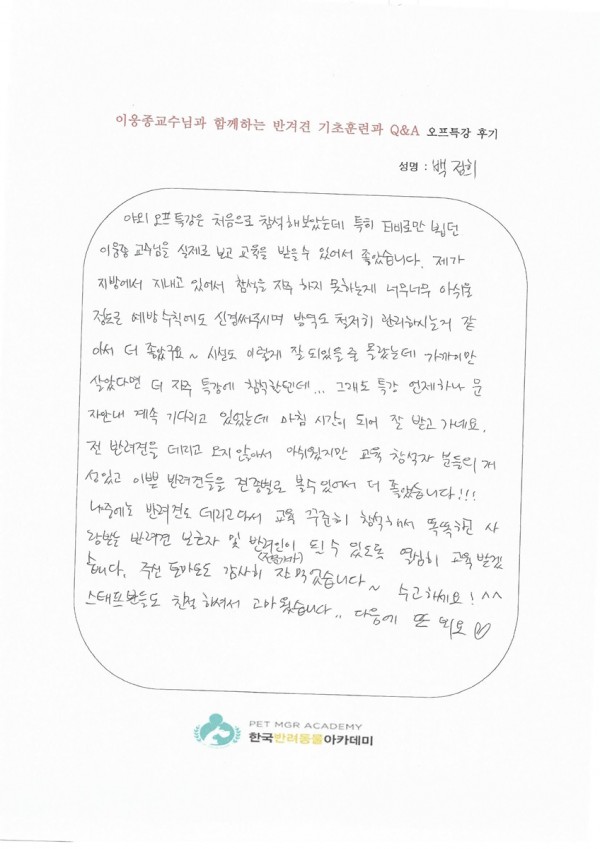 이웅종교수님과 함께하는 반겨견 기초훈련과 Q&A 오프특강 후기
성명 : 백점희
야외 오프 특강은 처음으로 참석해보았는데 특히 티비로만 뵙던
이웅종 교수님을 실제로 보고 교육을 받을 수 있어서 좋았습니다. 제가
지방에서 지내고 있어서 참석을 자주 하지 못하는게 너무너무 아쉬울
정도로 예방수칙에도 신경써주시며 방역도 철저히 관리하시는거 같
아서 더 좋았구요~ 시설도 이렇게 잘 되있을 줄 몰랐는데 가까이만
살았다면 더 자주 특강에 참석할텐데... 그래도 특강 언제하나 문
자안내 계속 기다리고 있었는데 마침 시간이 되어 잘 받고 가네요.
전 반려견을 데리고 오지 않아서 아쉬웠지만 교육 참석자 분들의 개
성있고 이쁜 반려견들을 견종별로 볼수 있어서 더 좋았습니다!!!
나중에도 반려견도 데리고다서 교육 꾸준히 참석해서 똑똑하고 사
랑받는 반려견 보호자 및 반려인이 될 수 있도록 열심히 교육받겠
(전문가)
습니다. 주신 토마토도 감사히 잘 먹었습니다~ 수고하세요! ^^
스태프분들도 친절하셔서 고마웠습니다.. 다음에 또 뵈요 ♡
PET MGR ACADEMY
한국반려동물아카데미